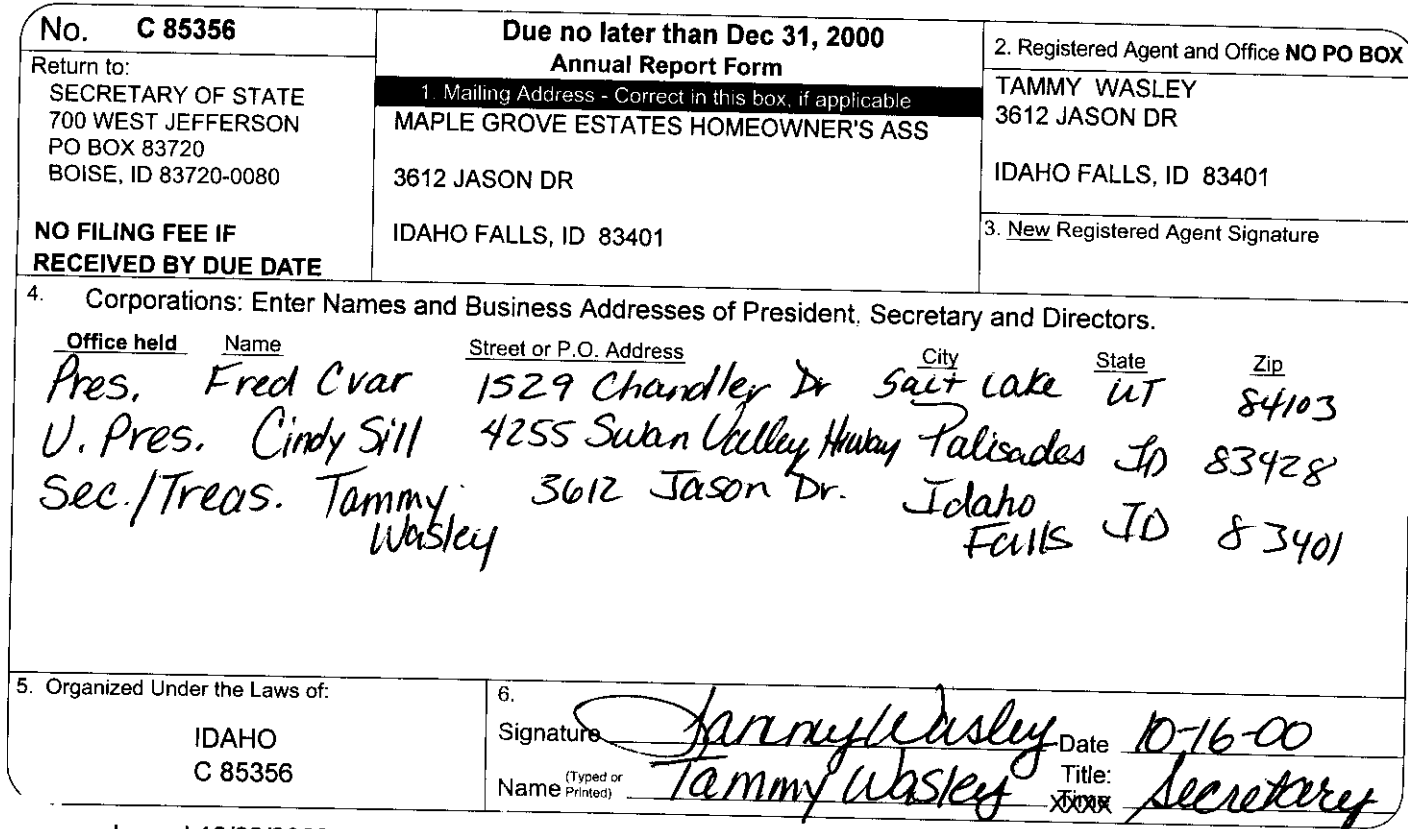 No. C 85356
Return to:
SECRETARY OF STATE
700 WEST JEFFERSON
PO BOX 83720
BOISE, ID 83720-0080
NO FILING FEE IF
RECEIVED BY DUE DATE
Due no later than Dec 31, 2000
Annual Report Form
1. Mailing Address - Correct in this box, if applicable
MAPLE GROVE ESTATES HOMEOWNER'S ASS
3612 JASON DR
IDAHO FALLS, ID 83401
2. Registered Agent and Office NO PO BOX
TAMMY WASLEY
3612 JASON DR
IDAHO FALLS, ID 83401
3. New Registered Agent Signature
4. Corporations: Enter Names and Business Addresses of President, Secretary and Directors.
Office held Name Street or P.O. Address City State Zip
Pres. Fred Cvar 1529 Chandler Dr Salt Lake UT 84103
V. Pres. Cindy Sill 4255 Swan Valley Hiway Palisades ID 83428
Sec./Treas. Tammy 3612 Jason Dr. Idaho
Wasley Falls ID 83401
5. Organized Under the Laws of:
IDAHO
C 85356
6.
Signature Tammy Wasley Date 10-16-00
Name (Typed or Printed) Tammy Wasley Title: Secretary